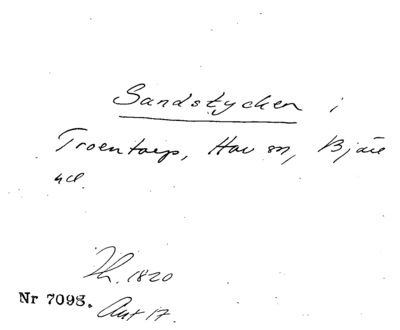 Sandstycken i
Troentorp, Hov sn, Bjäre
hd.
Th. 1820
Nr 7098.
Akt 17.